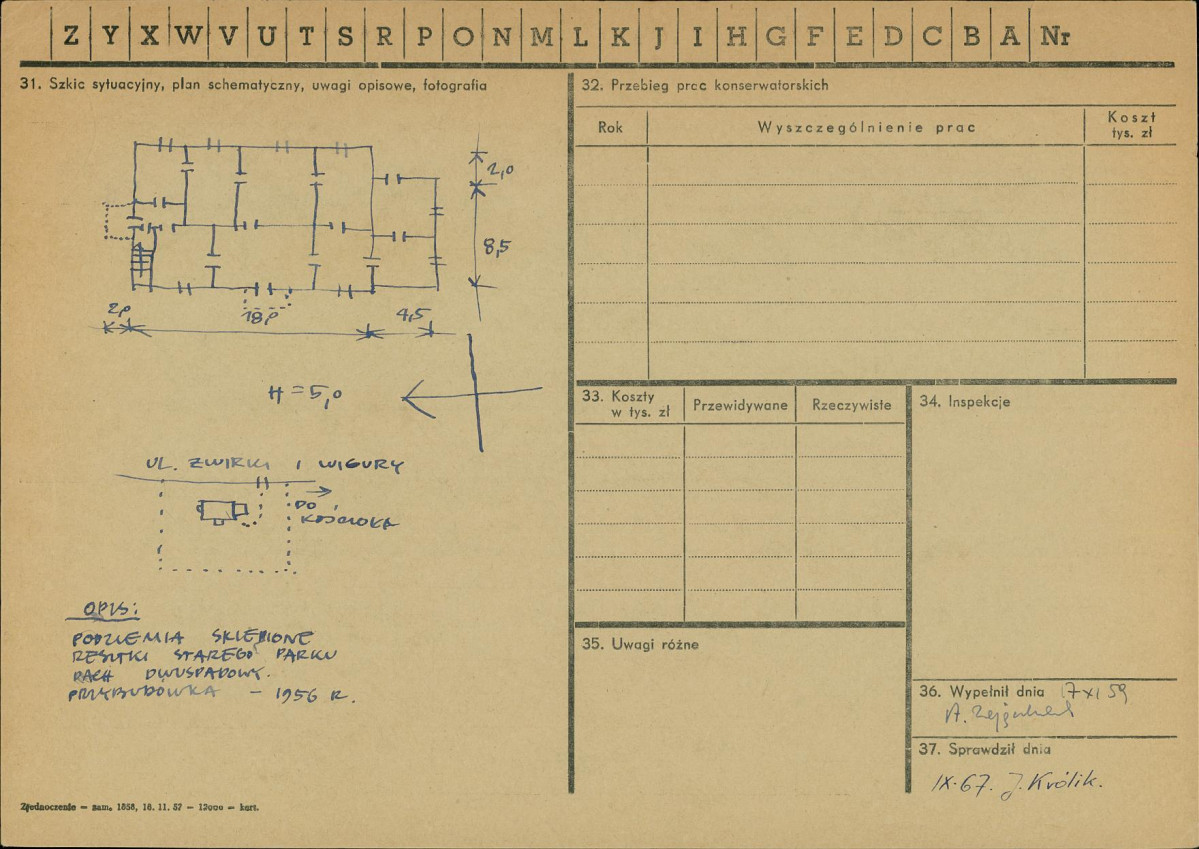 Z Y X W V U T S R P O N M L K J I H G F E D C B A Nr
31. Szkic sytuacyjny, plan schematyczny, uwagi opisowe, fotografia
2,0
8,5
2,0
18,0
4,5
H = 5,0
UL. ZWIRKI I WIGURY
DO
KOŚCIOŁA
OPIS:
PODZIEMIA SKLEPIONE
RESZTKI STAREGO PARKU
DACH DWUSPADOWY.
PRZYBUDÓWKA – 1956 R.
Zjednoczenie – zam. 1858, 16. 11. 57 – 12000 – kart.
32. Przebieg prac konserwatorskich
Rok
Wyszczególnienie prac
Koszt
tys. zł
33. Koszty
w tys. zł
Przewidywane
Rzeczywiste
34. Inspekcje
35. Uwagi różne
36. Wypełnił dnia 17 XI 59
A.
37. Sprawdził dnia
IX.67. J. Królik.